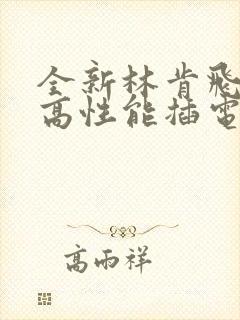 全新林肯飛
高性能插電
高雨祥